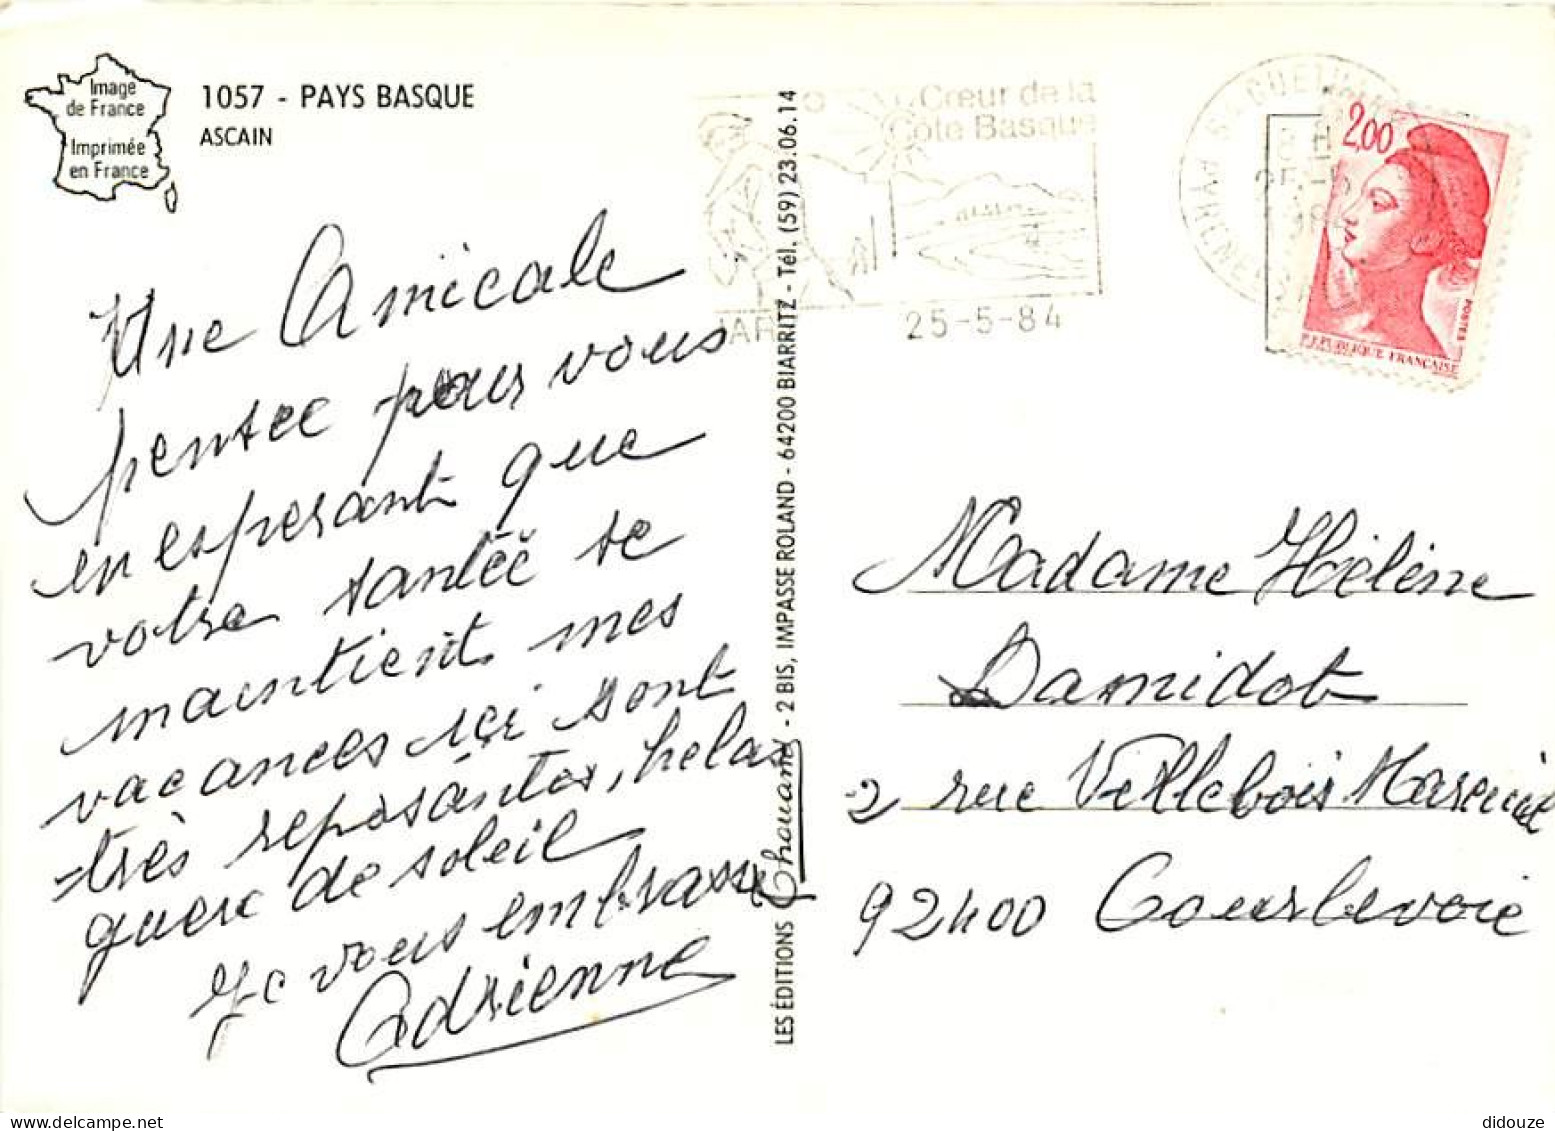 Image
de France
Imprimée
en France
1057 - PAYS BASQUE
ASCAIN
Une Amicale
pensee pour vous
en esperant que
votre santéé se
maintient, mes
vacances ici sont
très reposantes, helas
guere de soleil
Je vous embrasse
Adrienne
LES ÉDITIONS Chouans - 2 BIS, IMPASSE ROLAND - 64200 BIARRITZ - Tél. (59) 23.06.14
Cœur de la
Côte Basque
25-5-84
2,00
POSTES
REPUBLIQUE FRANÇAISE
Madame Hélène
Damidot
2 rue Villebois Mareuil
92400 Courbevoie
didouze